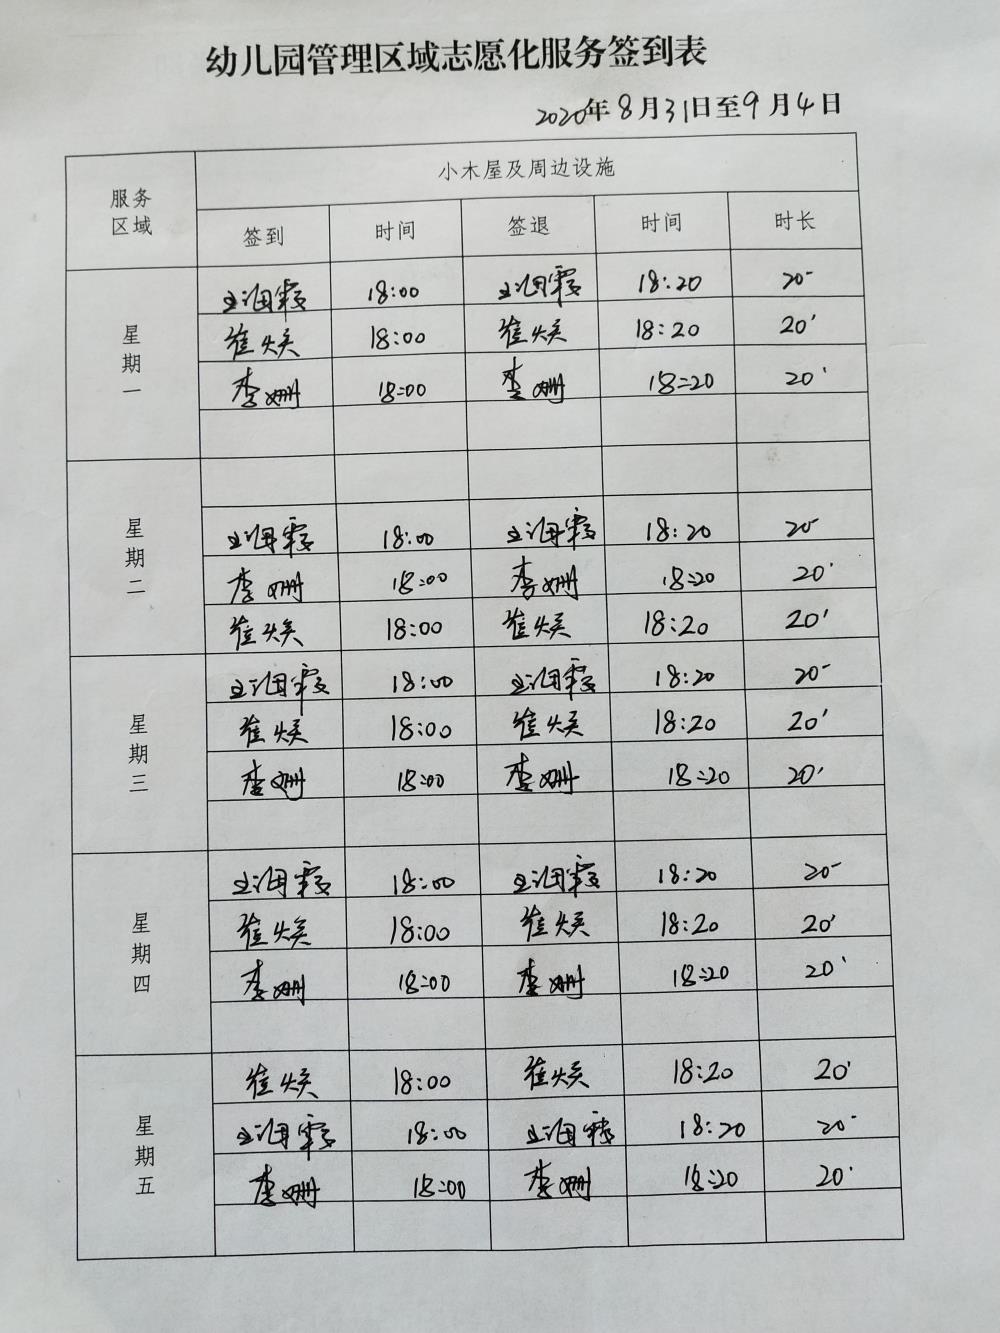 幼儿园管理区域志愿化服务签到表
2020年8月31日至9月4日
服务区域 小木屋及周边设施
签到 时间 签退 时间 时长
星期一
王海霞 18:00 王海霞 18:20 20'
崔焕 18:00 崔焕 18:20 20'
李姗 18:00 李姗 18:20 20'
星期二
王海霞 18:00 王海霞 18:20 20'
李姗 18:00 李姗 18:20 20'
崔焕 18:00 崔焕 18:20 20'
星期三
王海霞 18:00 王海霞 18:20 20'
崔焕 18:00 崔焕 18:20 20'
李姗 18:00 李姗 18:20 20'
星期四
王海霞 18:00 王海霞 18:20 20'
崔焕 18:00 崔焕 18:20 20'
李姗 18:00 李姗 18:20 20'
星期五
崔焕 18:00 崔焕 18:20 20'
王海霞 18:00 王海霞 18:20 20'
李姗 18:00 李姗 18:20 20'